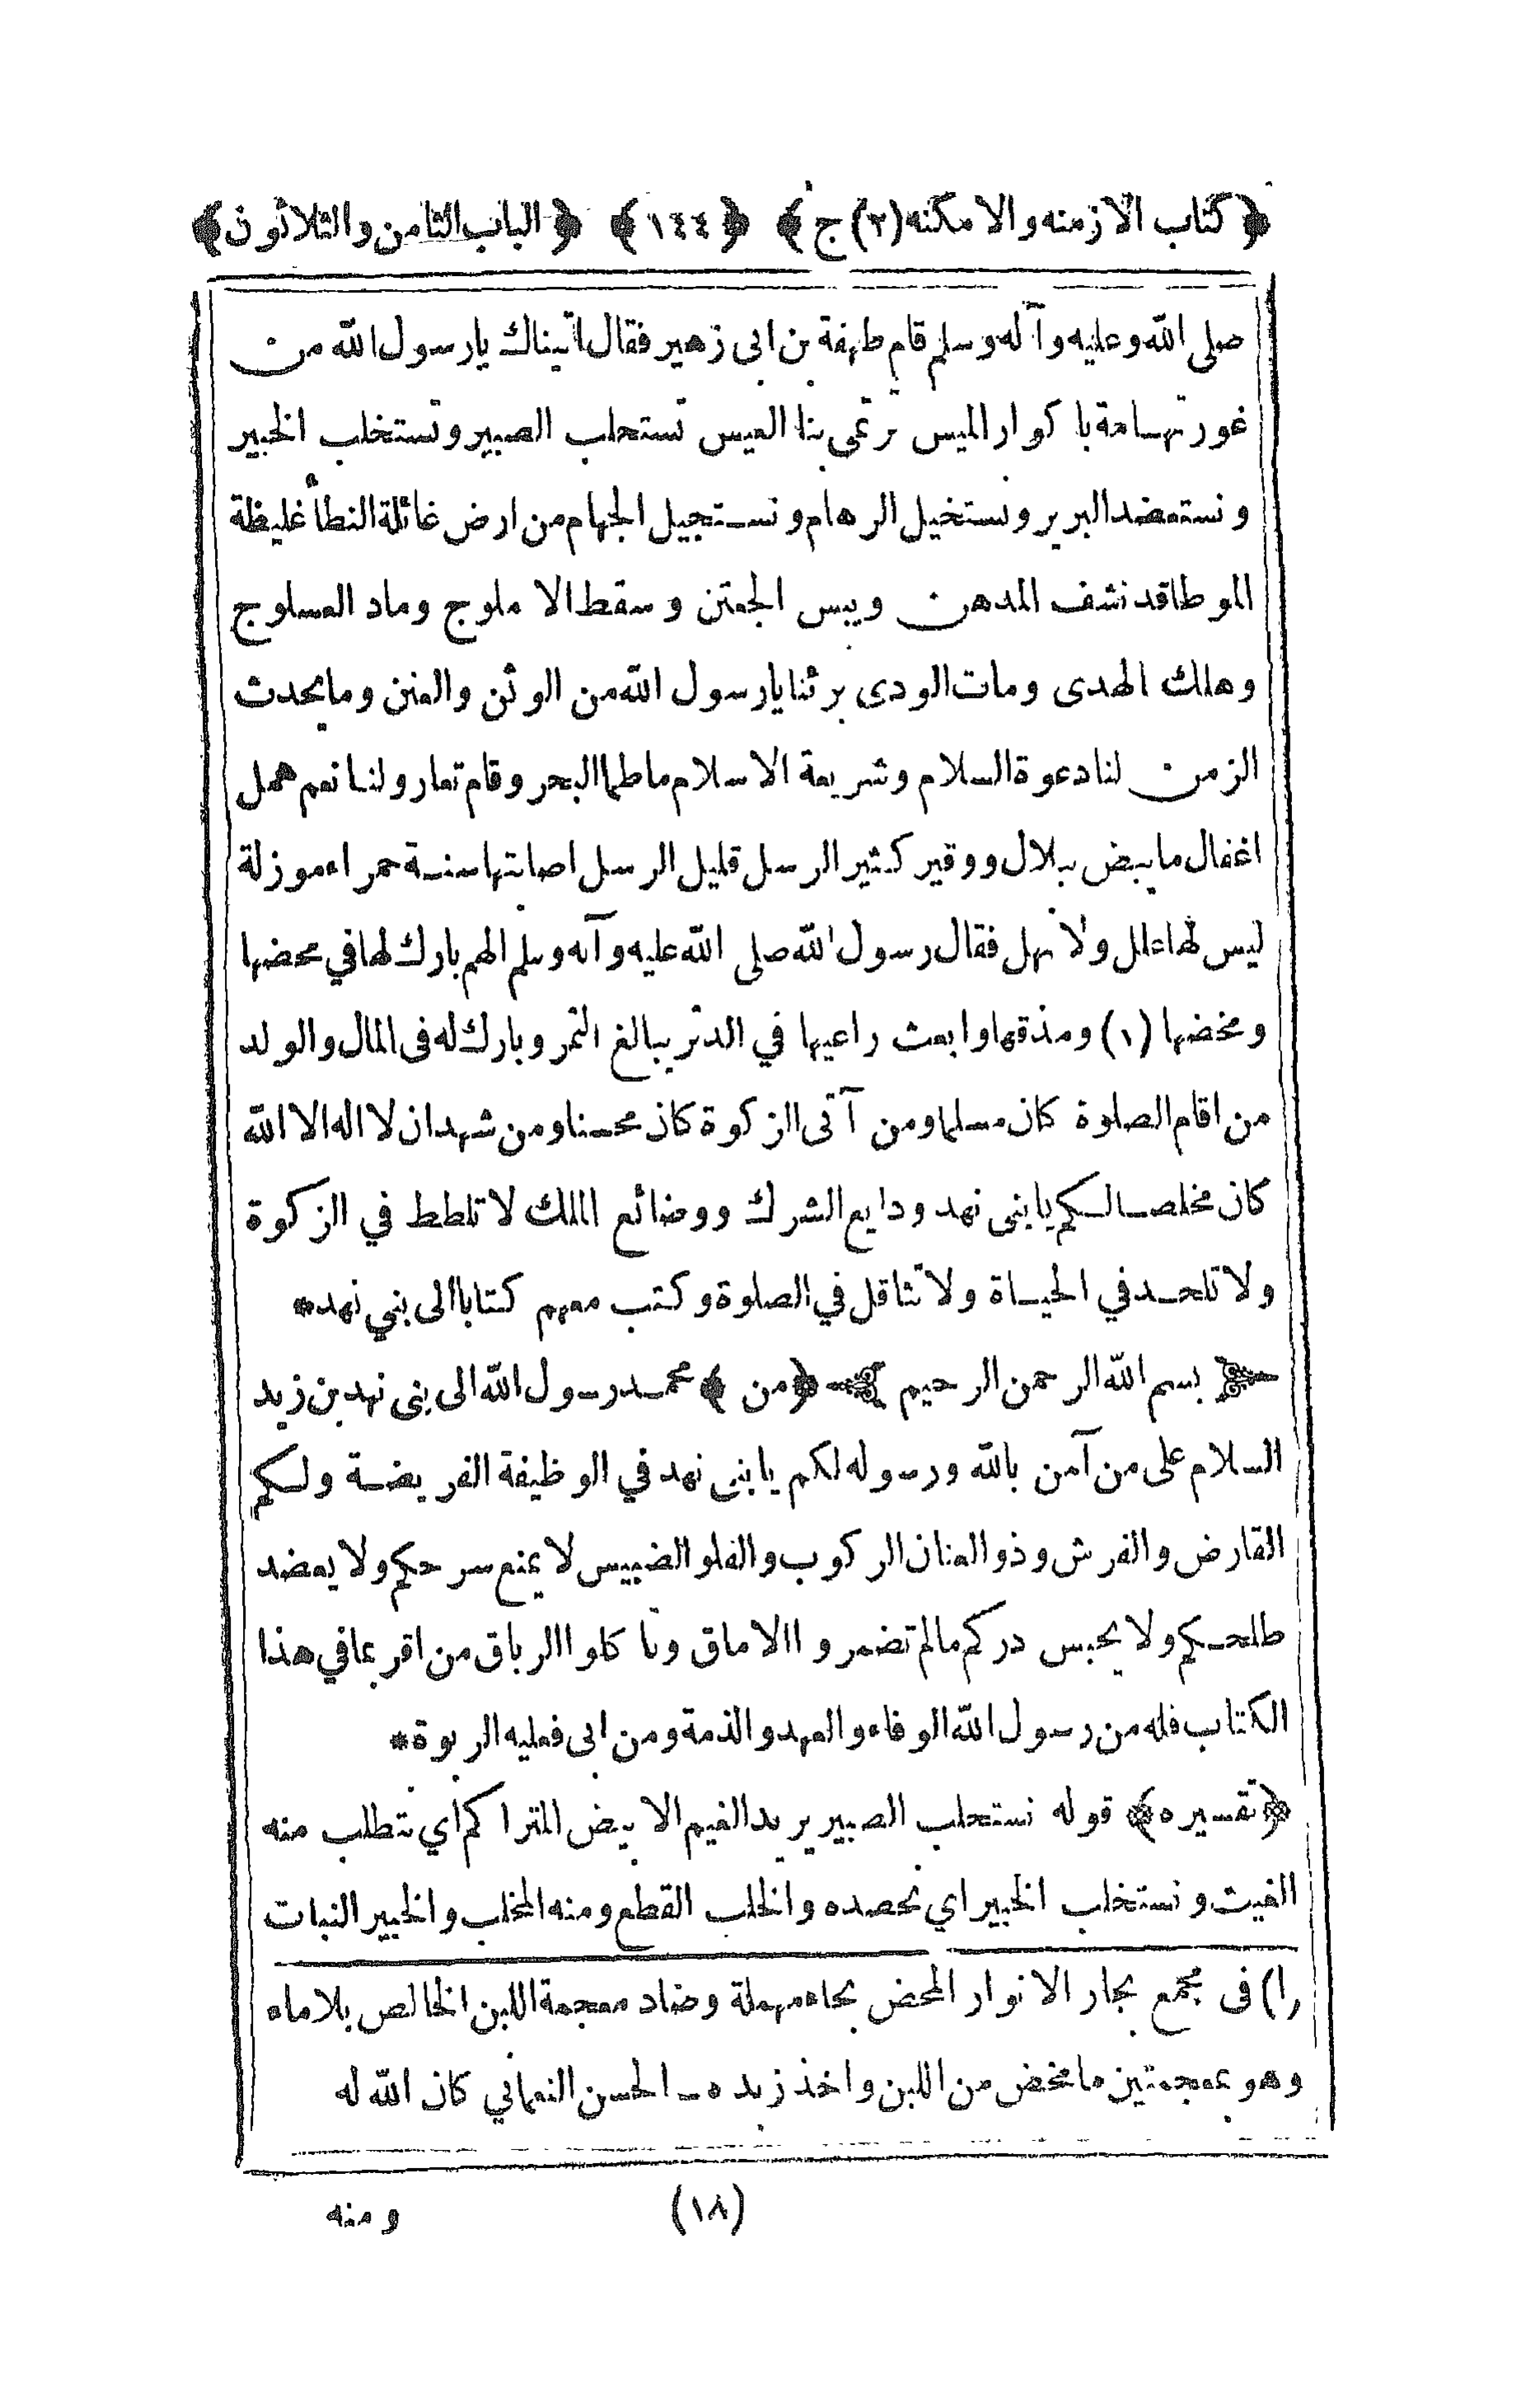 ﴿كتاب الازمنه والامكنه (٢) ج﴾ ﴿١٤٤﴾ ﴿الباب الثامن والثلاثون﴾
صلى الله وعليه وآله وسلم قام طهفة بن ابى زهير فقال اتيناك يارسول الله من
غور تهامة باكوار الميس ترتمى بنا العيس نستحلب الصبير ونستخلب الخبير
ونستعضد البرير ونستخيل الرهام ونستجيل الجهام من ارض غائلة النطأ غليظة
الموطاقد نشف المدهن ويبس الجعثن وسقط الاملوج وماد العسلوج
وهلك الهدى ومات الودى برئنا يارسول الله من الوثن والعنن وما يحدث
الزمن لنا دعوة السلام وشريعة الاسلام ماطما البحر وقام تعار ولنا نعم همل
اغفال ماتبض ببلال ووقير كثير الرسل قليل الرسل اصابتها سنة حمراء موزلة
ليس لها علل ولا نهل فقال رسول الله صلى الله عليه وآله وسلم الهم بارك لها في محضها
ومخضها (١) ومذقها وابعث راعيها في الدثر ببالغ الثمر وبارك له فى المال والولد
من اقام الصلوة كان مسلما ومن آتى الزكوة كان محسنا ومن شهد ان لا اله الا الله
كان مخلصا لكم يا بنى نهد ودايع الشرك ووضائع الملك لا تلطط في الزكوة
ولا تلحد في الحياة ولا تثاقل في الصلوة وكتب معهم كتابا الى بني نهد*
بسم الله الرحمن الرحيم ﴿من﴾ محمد رسول الله الى بنى نهد بن زيد
السلام على من آمن بالله ورسوله لكم يا بنى نهد في الوظيفة الفريضة ولكم
القارض والفرش وذو العنان الركوب والفلو الضبيس لا يمنع سرحكم ولا يعضد
طلحكم ولا يحبس دركم مالم تضمروا الاماق وتاكلوا الرباق من اقر بمافي هذا
الكتاب فله من رسول الله الوفاء والعهد والذمة ومن ابى فعليه الربوة*
﴿تفسيره﴾ قوله نستحلب الصبير يريد الغيم الابيض المتراكم أي نتطلب منه
الغيث ونستخلب الخبير اي نحصده والخلب القطع ومنه المخلب والخبير النبات
(١) فى مجمع بحار الانوار المحض بحاء مهملة وضاد معجمة اللبن الخالص بلا ماء
وهو بمعجمتين ما مخض من اللبن واخذ زبده ــ الحسن النعماني كان الله له
(١٨) ومنه